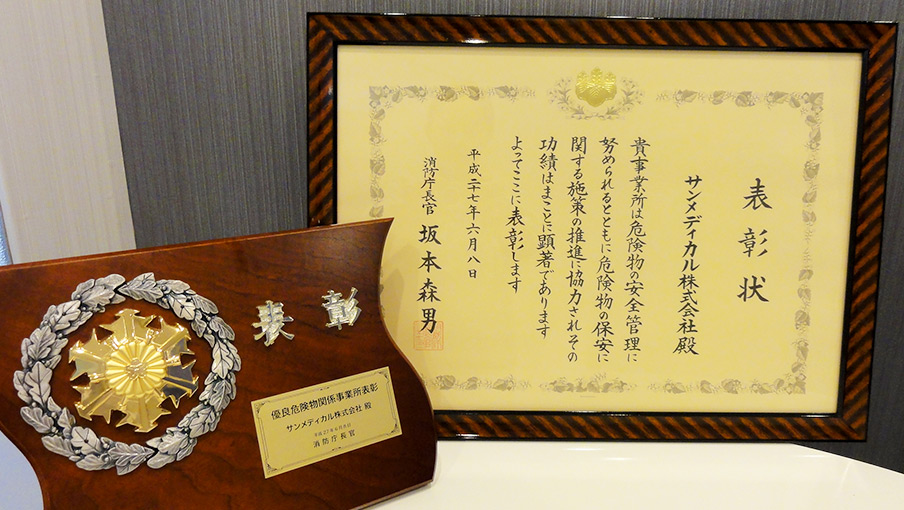 表彰状
サンメディカル株式会社殿
貴事業所は危険物の安全管理に
努められるとともに危険物の保安に
関する施策の推進に協力されその
功績はまことに顕著であります
よってここに表彰します
平成二十七年六月八日
消防庁長官 坂本森男
表彰
優良危険物関係事業所表彰
サンメディカル株式会社 殿
平成27年6月8日
消防庁長官